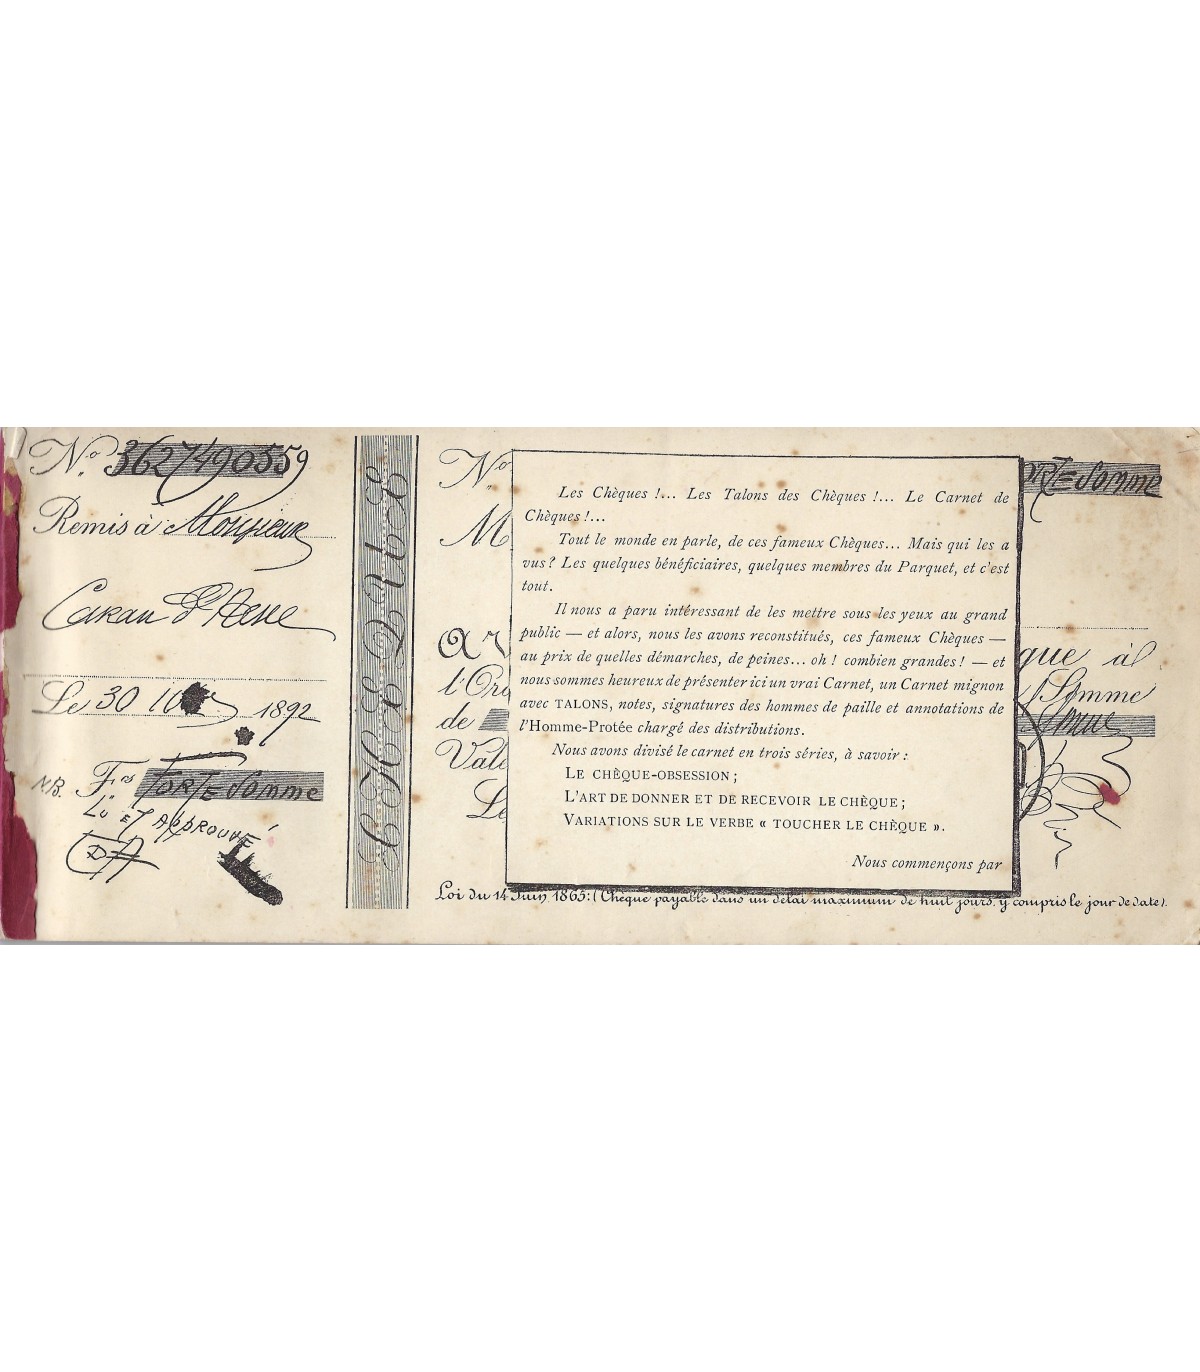 No 3627490559
Remis à Monsieur
Caran d'Ache
Le 30 10 1892
NB. Fcs FORTE Somme
LU ET APPROUVÉ
CHÈQUE
No
FORTE Somme
M
Les Chèques !... Les Talons des Chèques !... Le Carnet de
Chèques !...
Tout le monde en parle, de ces fameux Chèques... Mais qui les a
vus ? Les quelques bénéficiaires, quelques membres du Parquet, et c'est
tout.
Il nous a paru intéressant de les mettre sous les yeux au grand
public — et alors, nous les avons reconstitués, ces fameux Chèques —
au prix de quelles démarches, de peines... oh ! combien grandes ! — et
nous sommes heureux de présenter ici un vrai Carnet, un Carnet mignon
avec TALONS, notes, signatures des hommes de paille et annotations de
l'Homme-Protée chargé des distributions.
Nous avons divisé le carnet en trois séries, à savoir :
LE CHÈQUE-OBSESSION ;
L'ART DE DONNER ET DE RECEVOIR LE CHÈQUE ;
VARIATIONS SUR LE VERBE « TOUCHER LE CHÈQUE ».
Nous commençons par
que à
l'Or
Somme
de
Somme
Vale
Le
Loi du 14 Juin 1865: (Chèque payable dans un délai maximum de huit jours, y compris le jour de date).